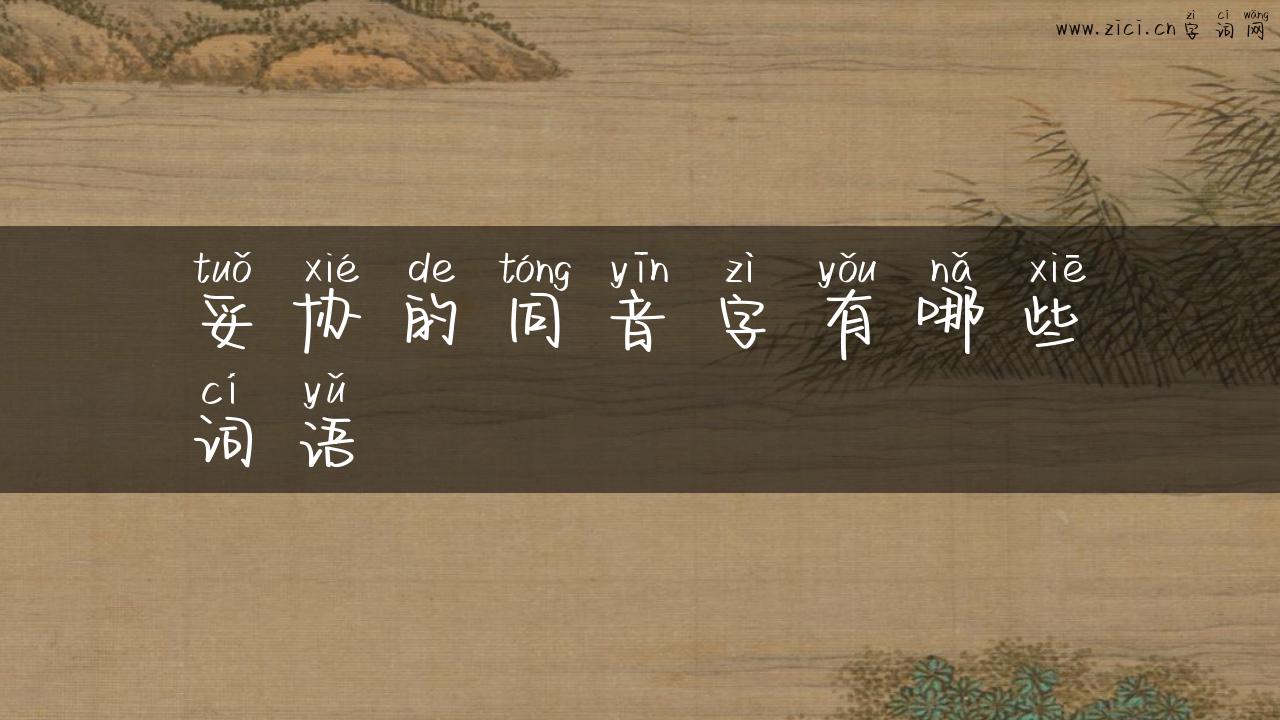 zì cí wǎng
www.zici.cn 字词网
tuǒ xié de tóng yīn zì yǒu nǎ xiē
妥协的同音字有哪些
cí yǔ
词语